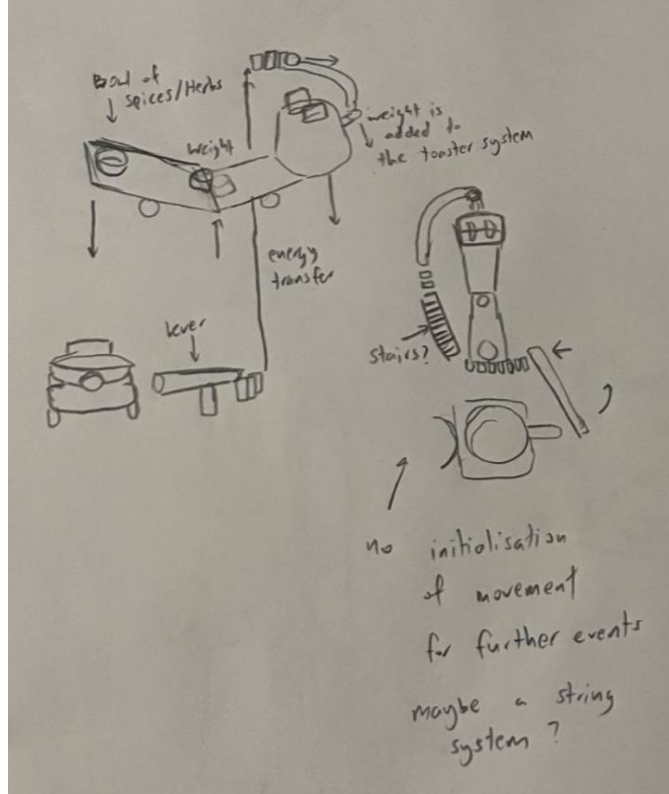 Bowl of
spices/Herbs
weight
weight is
added to
the toaster system
energy
transfer
lever
stairs?
no initiolisation
of movement
for further events
maybe a string
system ?